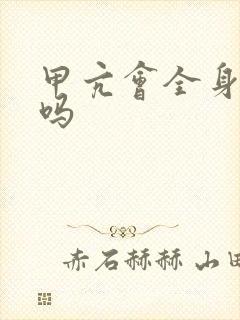 甲亢會全身
吗
赤石赫赫 山田